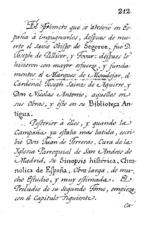 212.
El primero que se atrevió en Es-
paña à impugnarlos, despues de mu-
erto el Sabio Obispo de Segorve, fue D.
Joseph de Pellicer, y Tovar: despues lo
hicieron con mayor esfuerzo, y funda-
mentos el Marques de Mondejar, el
Cardenal Joseph Saenz de Aguirre, y
Don Nicolas Antonio, aquellos en
sus Obras, y éste en su Biblioteca An-
tigua.
Posterior à ellos, y quando la
Campaña ya estaba mas batida, escri-
bió Don Juan de Ferreras, Cura de la
Iglesia Parroquial de San Andres de
Madrid, su Sinopsis histórica, Chro-
nolica de España, Obra larga, de mu-
cho Estudio, y muy estimada. El
Preludio de su Segundo Tomo, empieza
con el Capitulo Siguiente.
Ca-